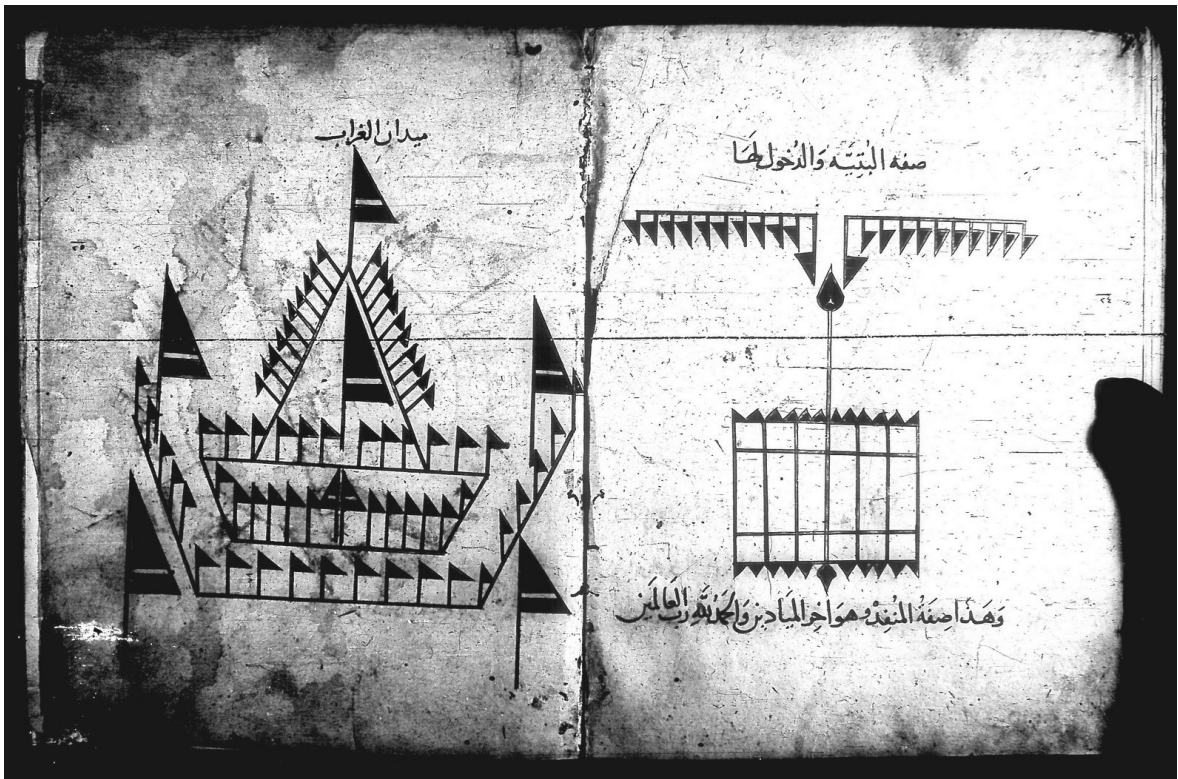 صفة البُتِيَّه وَالدُخول لهَا
٢٤
وَهَذا صِفَةُ المُنفِذ وهوَ اخر الميَادين وَالحَمدُ لله رَبّ العَالَمين
ميدان الغراب